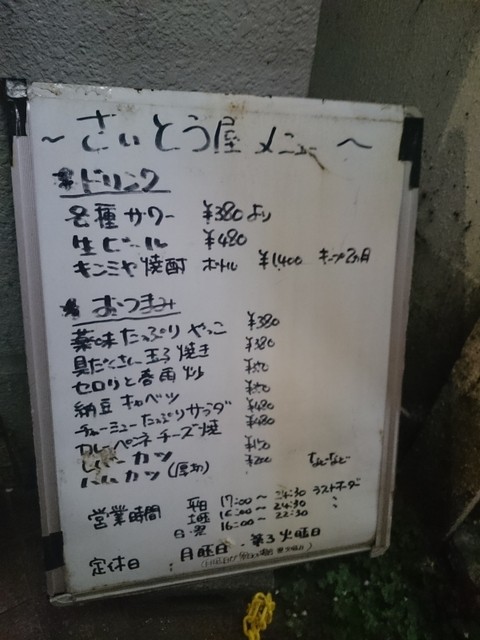 ～さいとう屋 メニュー～
ドリンク
各種サワー ¥380より
生ビール ¥480
キンミヤ焼酎 ボトル ¥1,400 キープ
おつまみ
薬味たっぷりやっこ ¥380
具だくさん玉子焼き ¥380
セロリと春雨炒
納豆キャベツ
チャーシューたっぷりサラダ ¥480
カレーペンネチーズ焼 ¥480
レバーカツ
ハムカツ(厚切) ¥200 などなど
営業時間 平日 17:00～24:30 ラストオーダー
土曜 16:00～24:30 〃
日・祝 16:00～22:30 〃
定休日 : 月曜日・第3火曜日